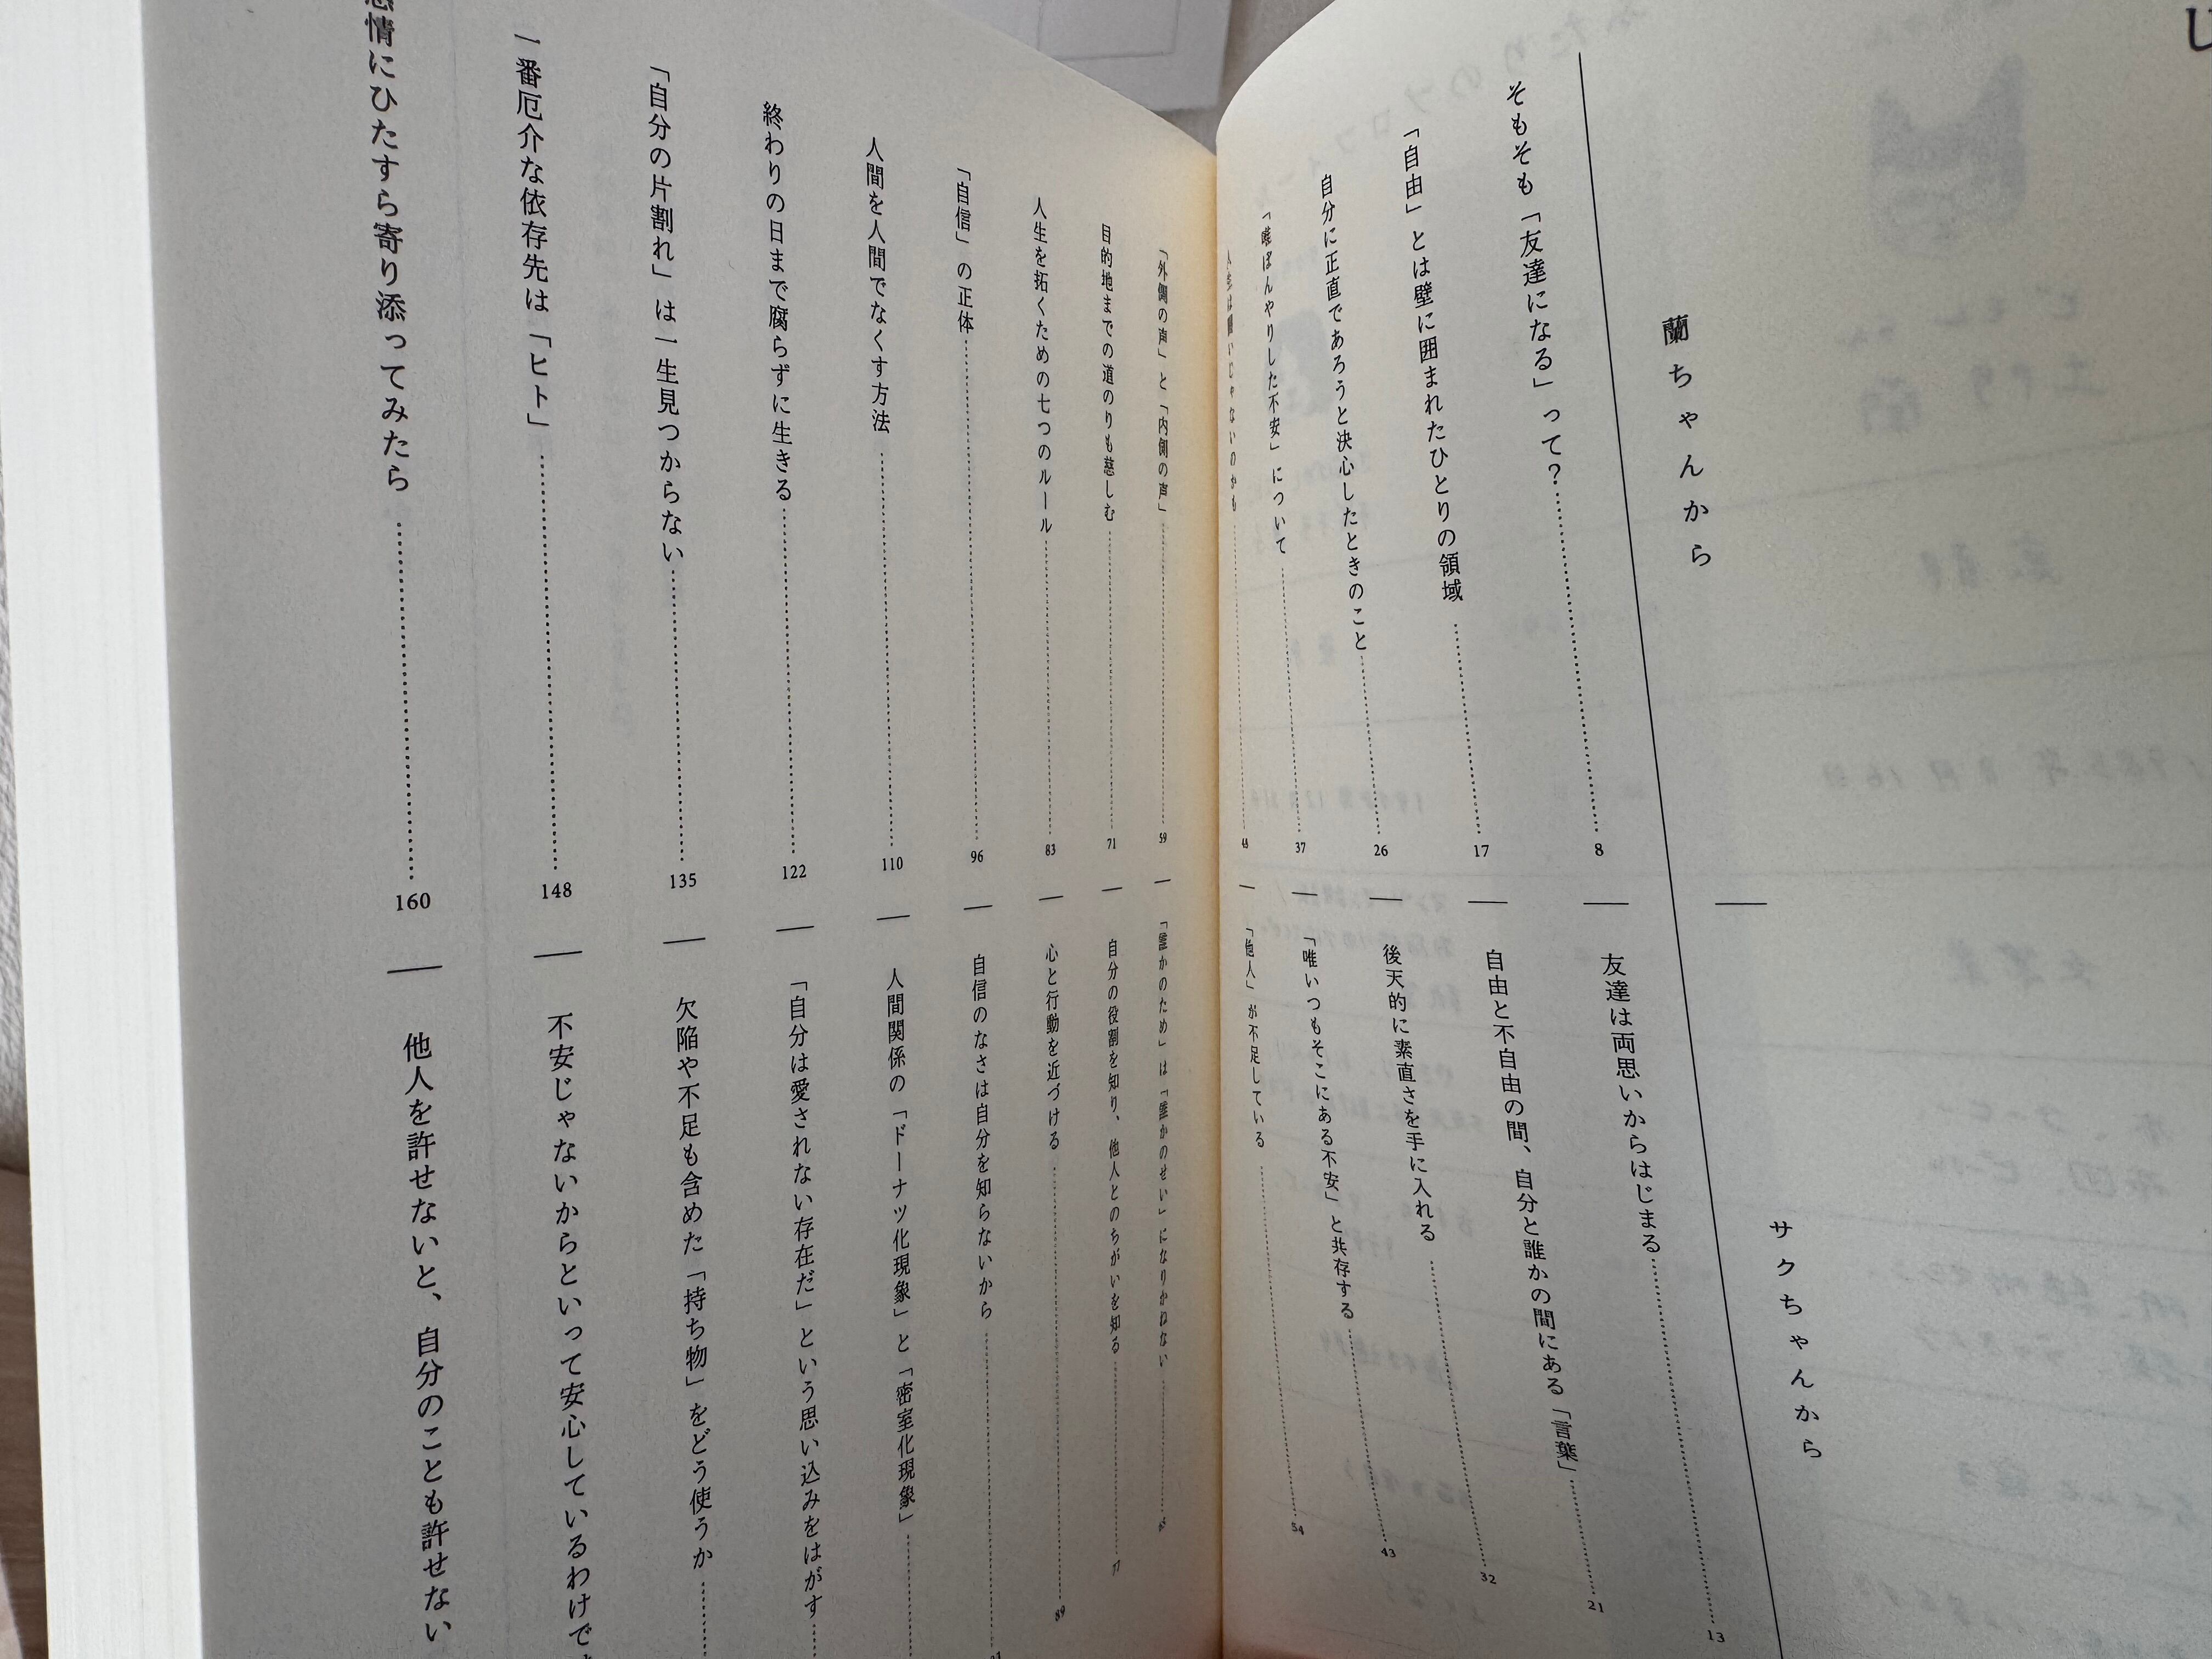 蘭ちゃんから
サクちゃんから
そもそも「友達になる」って？ 8
友達は両思いからはじまる 13
「自由」とは壁に囲まれたひとりの領域 17
自由と不自由の間、自分と誰かの間にある「言葉」 21
自分に正直であろうと決心したときのこと 26
後天的に素直さを手に入れる 32
「唯ぼんやりした不安」について 37
「唯いつもそこにある不安」と共存する 43
人生は闘いじゃないのかも 48
「他人」が不足している 54
「外側の声」と「内側の声」 59
「誰かのため」は「誰かのせい」になりかねない 65
目的地までの道のりも慈しむ 71
自分の役割を知り、他人とのちがいを知る 77
人生を拓くための七つのルール 83
心と行動を近づける 89
「自信」の正体 96
自信のなさは自分を知らないから
人間を人間でなくす方法 110
人間関係の「ドーナツ化現象」と「密室化現象」
終わりの日まで腐らずに生きる 122
「自分は愛されない存在だ」という思い込みをはがす
「自分の片割れ」は一生見つからない 135
欠陥や不足も含めた「持ち物」をどう使うか
一番厄介な依存先は「ヒト」 148
不安じゃないからといって安心しているわけで
感情にひたすら寄り添ってみたら 160
他人を許せないと、自分のことも許せない